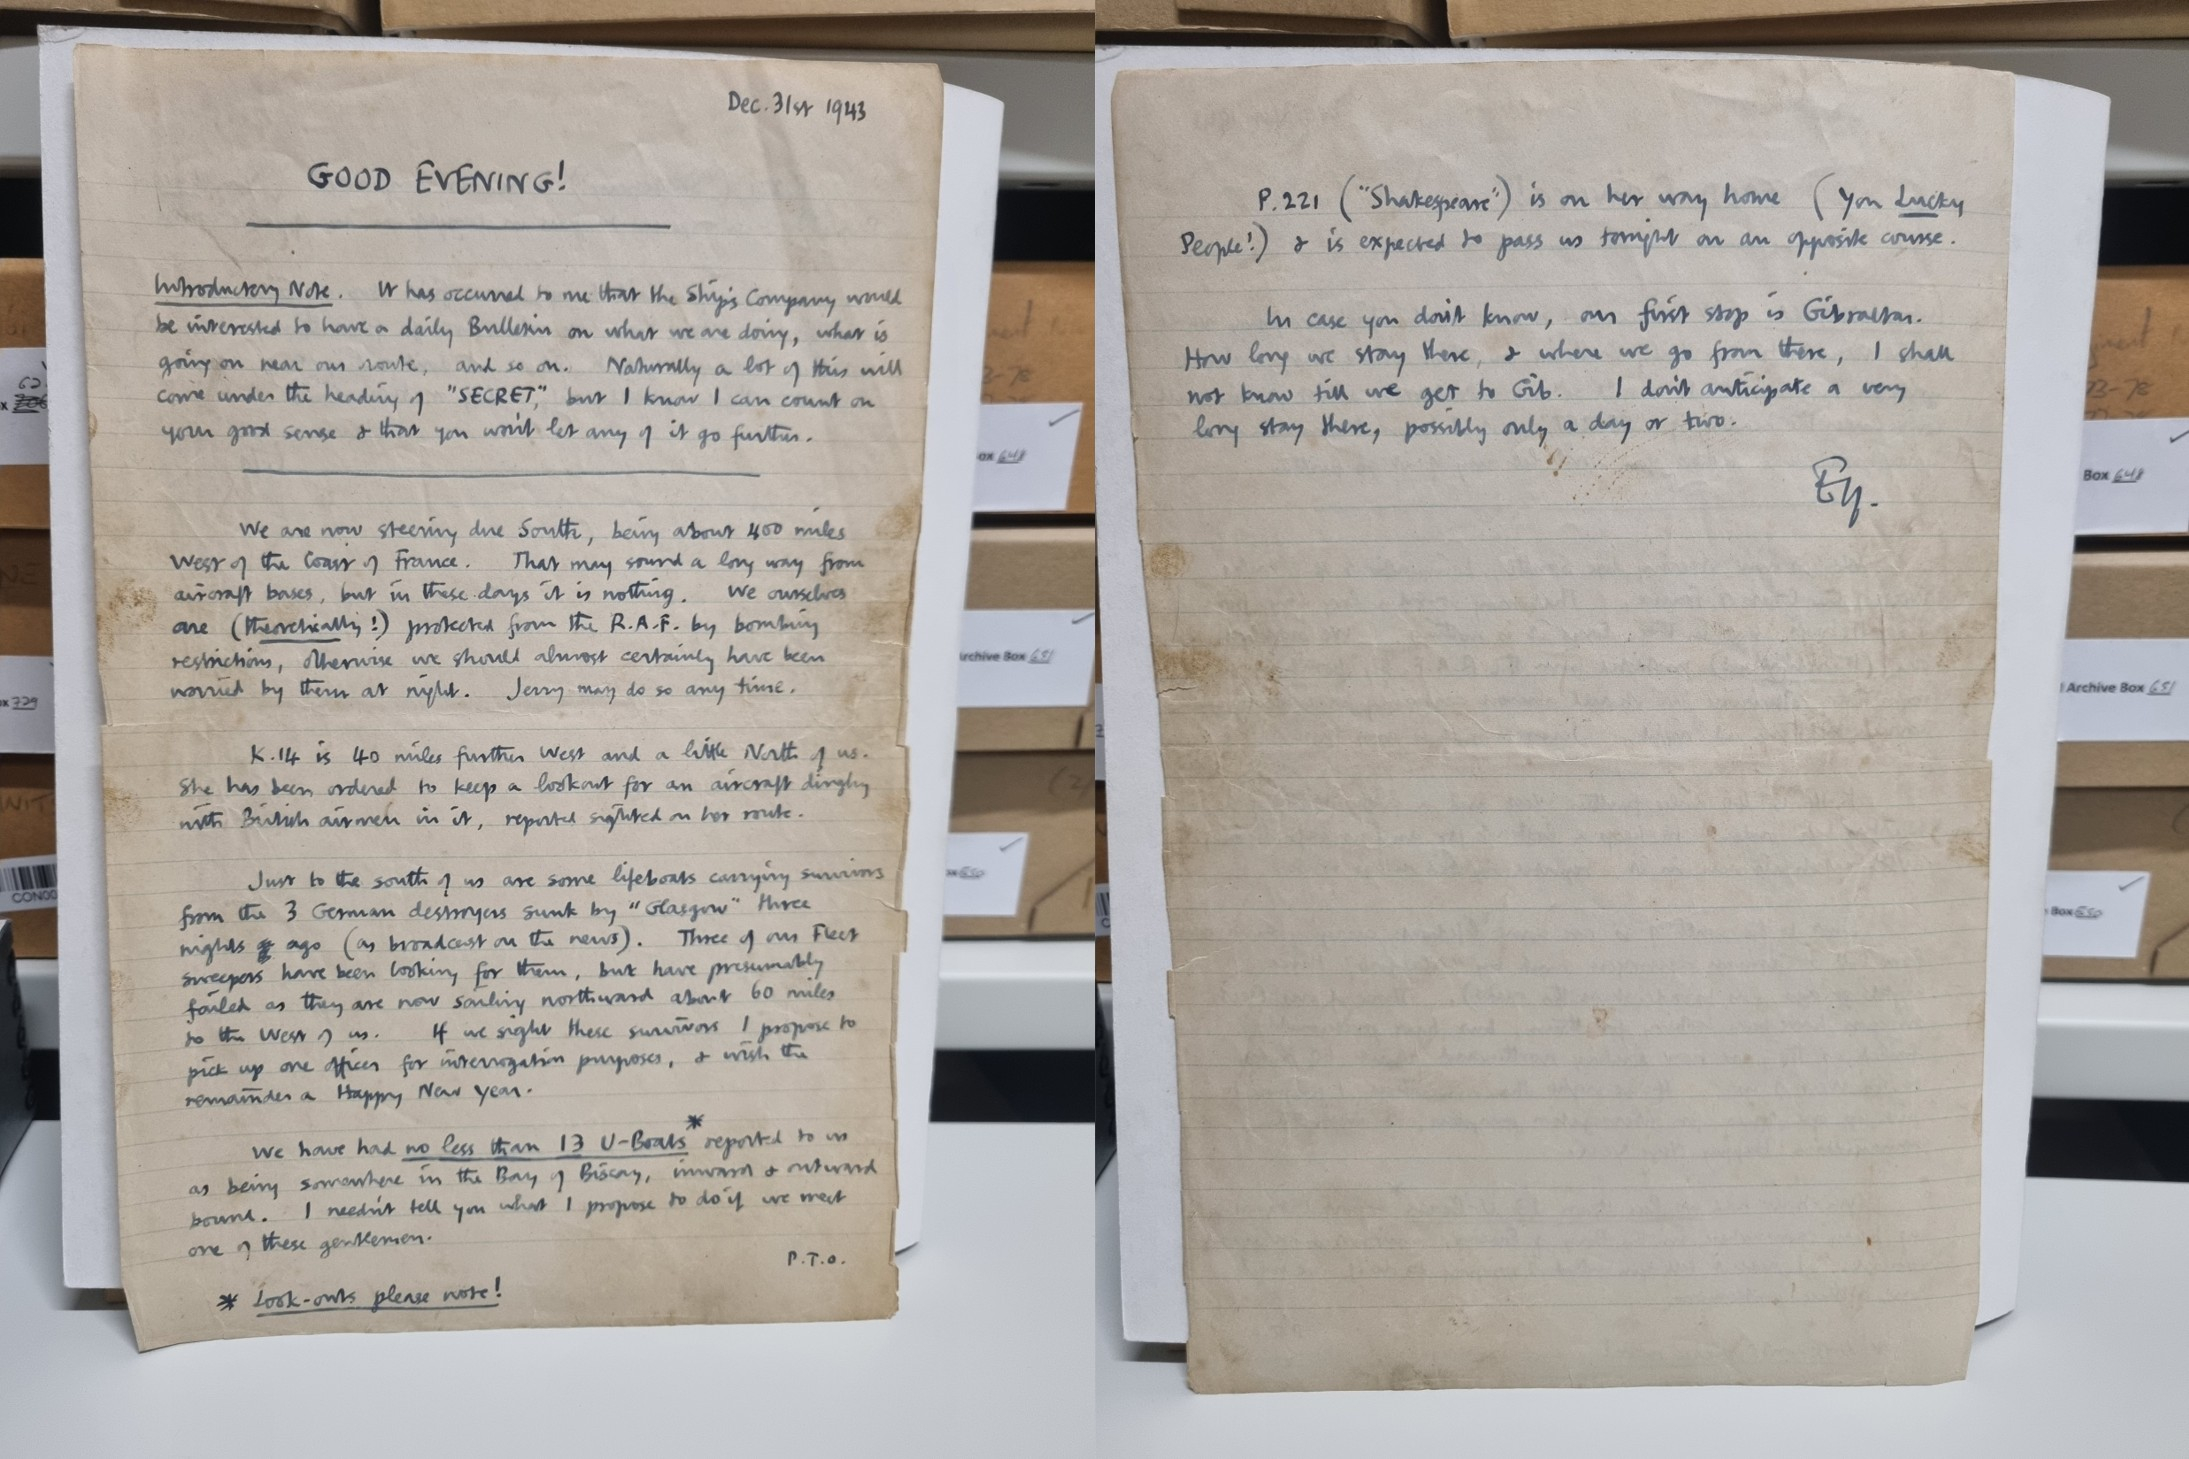 Dec. 31st 1943
GOOD EVENING!
Introductory Note. It has occurred to me that the Ship's Company would
be interested to have a daily Bulletin on what we are doing, what is
going on near our route, and so on. Naturally a lot of this will
come under the heading of "SECRET," but I know I can count on
your good sense & that you won't let any of it go further.
We are now steering due South, being about 400 miles
West of the Coast of France. That may sound a long way from
aircraft bases, but in these days it is nothing. We ourselves
are (theoretically!) protected from the R.A.F. by bombing
restrictions, otherwise we should almost certainly have been
worried by them at night. Jerry may do so any time.
K.14 is 40 miles further West and a little North of us.
She has been ordered to keep a lookout for an aircraft dinghy
with British airmen in it, reported sighted on her route.
Just to the south of us are some lifeboats carrying survivors
from the 3 German destroyers sunk by "Glasgow" three
nights ago (as broadcast on the news). Three of our Fleet
sweepers have been looking for them, but have presumably
failed as they are now sailing northward about 60 miles
to the West of us. If we sight these survivors I propose to
pick up one officer for interrogation purposes, & wish the
remainder a Happy New Year.
We have had no less than 13 U-Boats* reported to us
as being somewhere in the Bay of Biscay, inward & outward
bound. I needn't tell you what I propose to do if we meet
one of these gentlemen.
P.T.O.
* Look-outs please note!
P.221 ("Shakespeare") is on her way home (You Lucky
People!) & is expected to pass us tonight on an opposite course.
In case you don't know, our first stop is Gibraltar.
How long we stay there, & where we go from there, I shall
not know till we get to Gib. I don't anticipate a very
long stay there, possibly only a day or two.
Box 648
Archive Box 651
Box 650
Box 648
Archive Box 651
Box 650